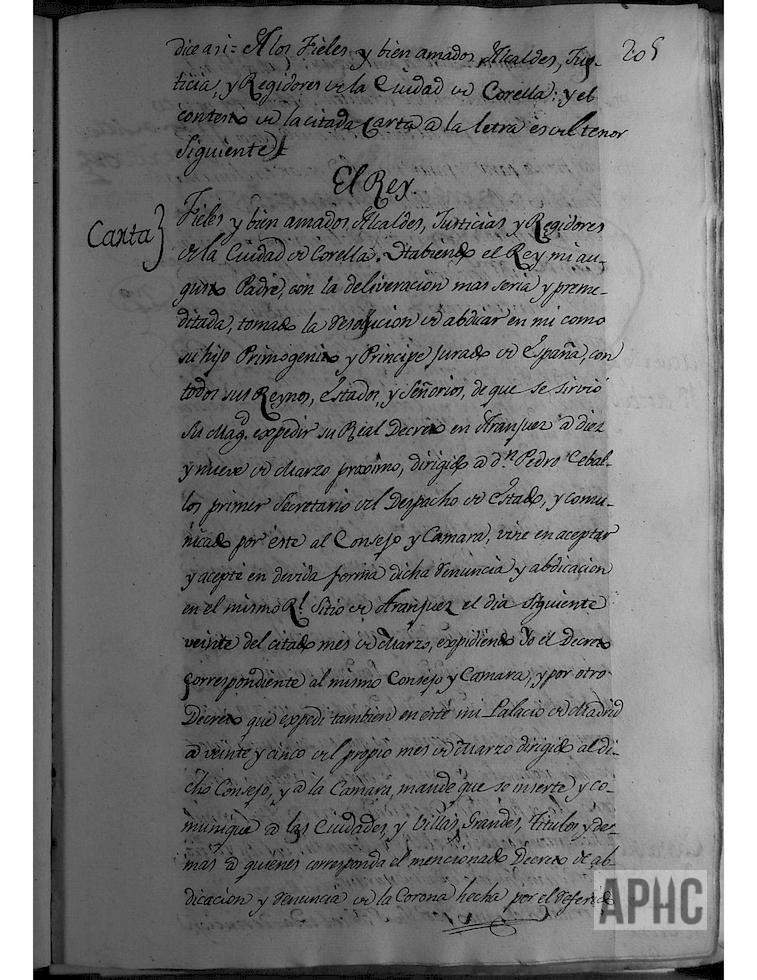 205
dice asi = A los Fieles y bien amados Alcaldes, Jus-
ticia, y Regidores de la Ciudad de Corella: y el
contesto de la citada Carta a la letra es del tenor
Siguiente
El Rey.
Carta
Fieles y bien amados Alcaldes, Justicias y Regidores
de la Ciudad de Corella. Habiendo el Rey mi au-
gusto Padre, con la deliveracion mas seria y preme-
ditada, tomado la resolucion de abdicar en mi como
su hijo Primogenito y Principe jurado de España, con
todos sus Reynos, Estados, y Señorios, de que se sirvió
Su Mag.d expedir su Real Decreto en Aranjuez a diez
y nueve de Marzo proximo, dirigido a d.n Pedro Cebal-
los primer Secretario del Despacho de Estado, y comu-
nicado por éste al Consejo y Camara, vine en aceptar
y acepté en devida forma dicha renuncia y abdicacion
en el mismo R.l Sitio de Aranjuez el dia siguiente
veinte del citado mes de Marzo, expidiendo Yo el Decreto
correspondiente al mismo Consejo y Camara, y por otro
Decreto que expedi tambien en este mi Palacio de Madrid
a veinte y cinco del propio mes de Marzo dirigido al di-
cho Consejo, y a la Camara, mandé que se inserte y co-
munique a las Ciudades, y Villas, Grandes, Titulos y de-
mas a quienes corresponda el mencionado Decreto de ab-
dicacion y renuncia de la Corona hecha por el referido
APHC